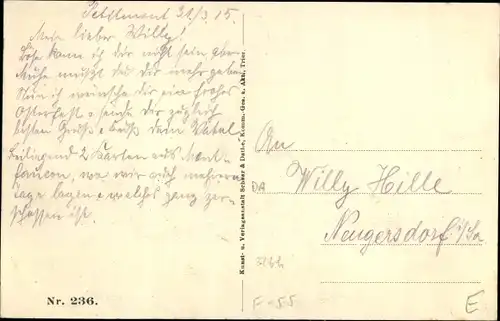 Petitmont 31/3. 15.
Mein lieber Willy!
Böse kann ich dir nicht sein aber
Mühe mußt du dir mehr geben
Nun ich wünsche dir ein frohes
Osterfest u. sende dir zugleich
besten Gruß u. Kuß dein Vater
Beiliegend 2 Karten aus Mont-
faucon, wo wir auch mehrere
Tage lagen u. welches ganz zer-
schossen ist.
Nr. 236.
Kunst- u. Verlagsanstalt Schaar & Dathe, Komm.-Ges. a. Akt., Trier.
An
Willy Hille
Neugersdorf i/Sa
DA
F-55
E